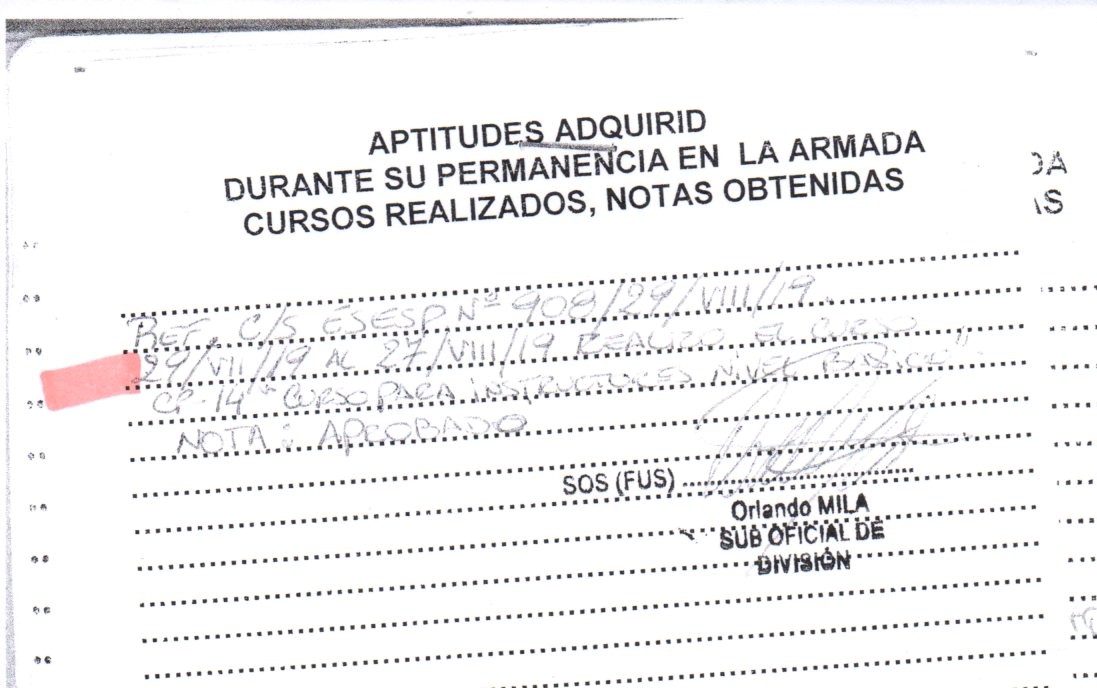 APTITUDES ADQUIRID
DURANTE SU PERMANENCIA EN LA ARMADA
CURSOS REALIZADOS, NOTAS OBTENIDAS
DA
AS
REF. C/S ESESP Nº 908/29/VIII/19.
29/VII/19 AL 27/VIII/19 REALIZO EL CURSO
CP-14 "CURSO PARA INSTRUCTORES NIVEL BASICO".
NOTA: APROBADO
SOS (FUS)
Orlando MILA
SUB OFICIAL DE
DIVISIÓN